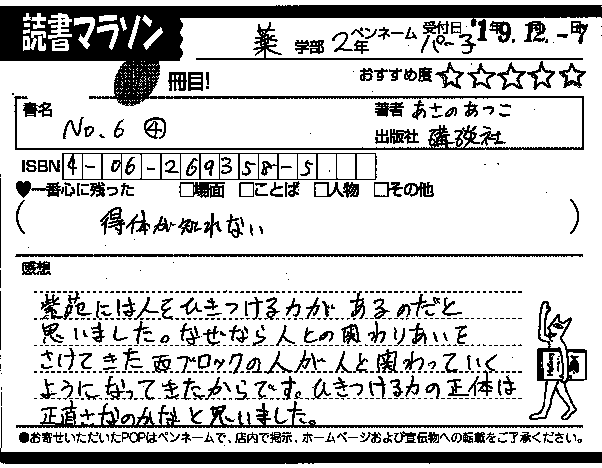 読書マラソン
薬 学部 2年 ペンネーム パー子 受付日 '19.12.-7
冊目!
おすすめ度 ☆☆☆☆☆
書名 No.6 ④
著者 あさのあつこ
出版社 講談社
ISBN 4-06-269358-5
♥一番心に残った □場面 □ことば □人物 □その他
( 得体が知れない )
感想
紫苑には人をひきつける力があるのだと
思いました。なぜなら人との関わりあいを
さけてきた西ブロックの人が人と関わっていく
ようになってきたからです。ひきつける力の正体は
正直さなのかなと思いました。
●お寄せいただいたPOPはペンネームで、店内で掲示、ホームページおよび宣伝物への転載をご了承ください。